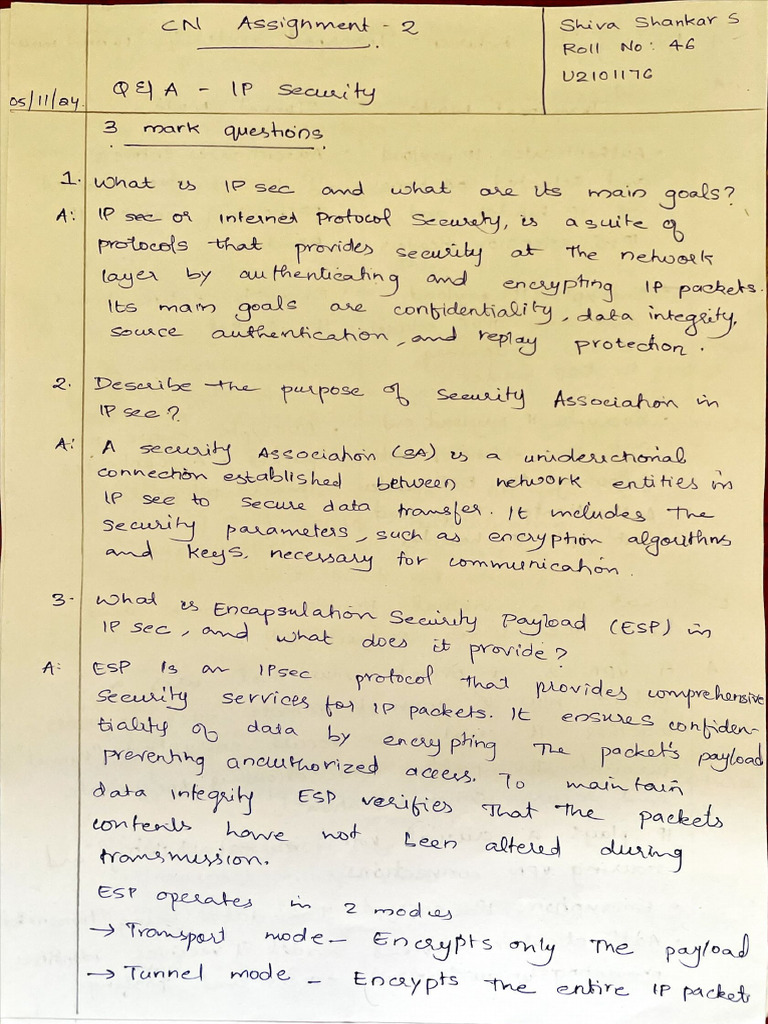 CN Assignment - 2
Shiva Shankar S
Roll No: 46
U2101176
05/11/24.
Q & A - IP Security
3 mark questions.
1. What is IP sec and what are its main goals?
A: IP sec or Internet Protocol Security, is a suite of
protocols that provides security at the network
layer by authenticating and encrypting IP packets.
Its main goals are confidentiality, data integrity,
source authentication, and replay protection.
2. Describe the purpose of Security Association in
IP sec?
A: A security Association (SA) is a unidirectional
connection established between network entities in
IP sec to secure data transfer. It includes the
security parameters, such as encryption algorithms
and keys, necessary for communication.
3. What is Encapsulation Security Payload (ESP) in
IP sec, and what does it provide?
A: ESP is an IPsec protocol that provides comprehensive
security services for IP packets. It ensures confiden-
tiality of data by encrypting the packet's payload
preventing unauthorized access. To maintain
data integrity ESP verifies that the packets
contents have not been altered during
transmission.
ESP operates in 2 modes
→ Transport mode - Encrypts only the payload
→ Tunnel mode - Encrypts the entire IP packet